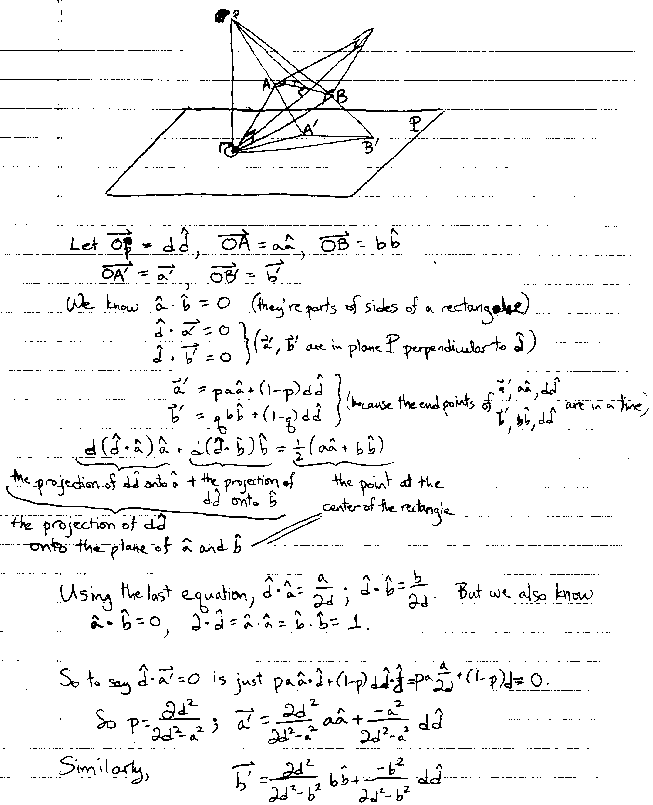 A
B
P
A'
B'
Let OP = d d̂, OA = a â, OB = b b̂
OA' = a', OB' = b'
We know â · b̂ = 0 (they're parts of sides of a rectangle)
d̂ · a' = 0
d̂ · b' = 0 } (a', b' are in plane P perpendicular to d̂)
a' = p a â + (1-p) d d̂
b' = q b b̂ + (1-q) d d̂ } (because the end points of a', aâ, dd̂ b', bb̂, dd̂ are in a line)
d(d̂·â)â + d(d̂·b̂)b̂ = ½(aâ + bb̂)
the projection of dd̂ onto â + the projection of dd̂ onto b̂
the point at the center of the rectangle
the projection of dd̂
onto the plane of â and b̂
Using the last equation, d̂·â = a/2d ; d̂·b̂ = b/2d. But we also know
â · b̂ = 0, d̂·d̂ = â·â = b̂·b̂ = 1.
So to say d̂·a' = 0 is just paâ·d̂ + (1-p)dd̂·d̂ = pa a/2d + (1-p)d = 0.
So p = 2d²/(2d²-a²) ; a' = 2d²/(2d²-a²) aâ + -a²/(2d²-a²) dd̂
Similarly, b' = 2d²/(2d²-b²) bb̂ + -b²/(2d²-b²) dd̂